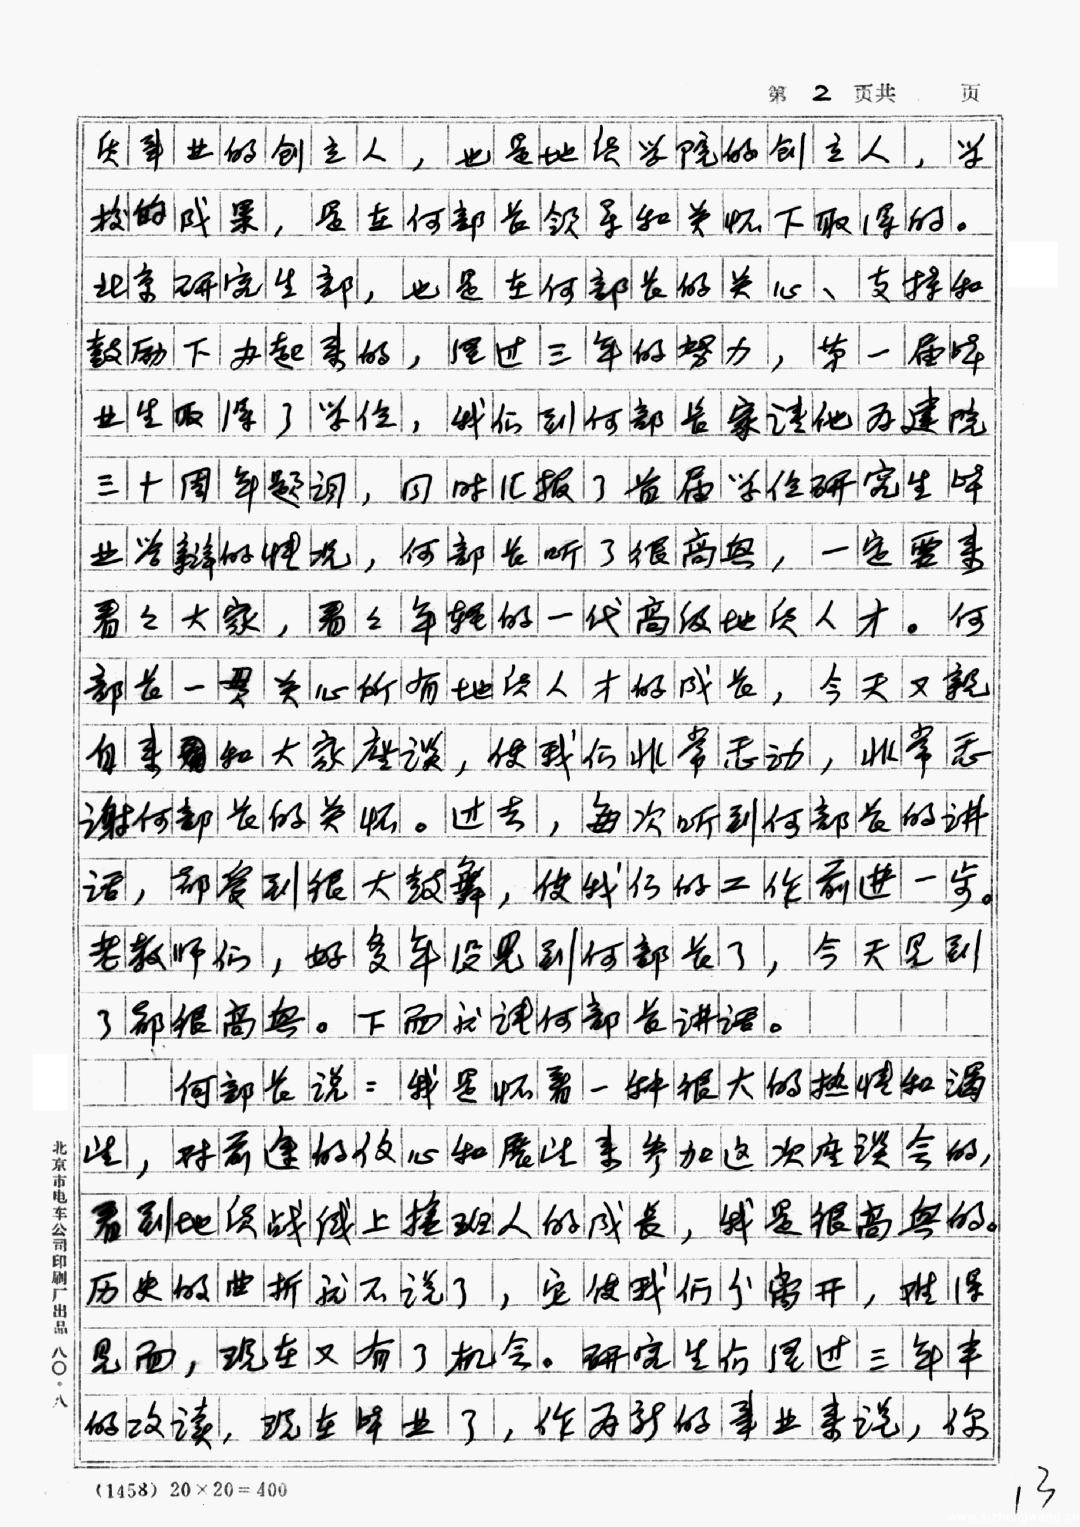 第 2 页共 页
质事业的创立人，也是地质学院的创立人，学
校的成果，是在何部长领导和关怀下取得的。
北京研究生部，也是在何部长的关心、支持和
鼓励下办起来的，经过三年的努力，第一届毕
业生取得了学位，我们到何部长家请他为建院
三十周年题词，同时汇报了首届学位研究生毕
业答辩的情况，何部长听了很高兴，一定要来
看々大家，看々年轻的一代高级地质人才。何
部长一贯关心所有地质人才的成长，今天又亲
自来和大家座谈，使我们非常感动，非常感
谢何部长的关怀。过去，每次听到何部长的讲
话，都受到很大鼓舞，使我们的工作前进一步。
老教师们，好多年没见到何部长了，今天见到
了都很高兴。下面就请何部长讲话。
何部长说：我是怀着一种很大的热情和渴
望，对前途的信心和展望来参加这次座谈会的，
看到地质战线上接班人的成长，我是很高兴的。
历史的曲折就不说了，它使我们分离开，难得
见面，现在又有了机会。研究生们经过三年半
的攻读，现在毕业了，作为新的事业来说，你
北京市电车公司印刷厂出品 八〇·八
(1458) 20×20=400
13